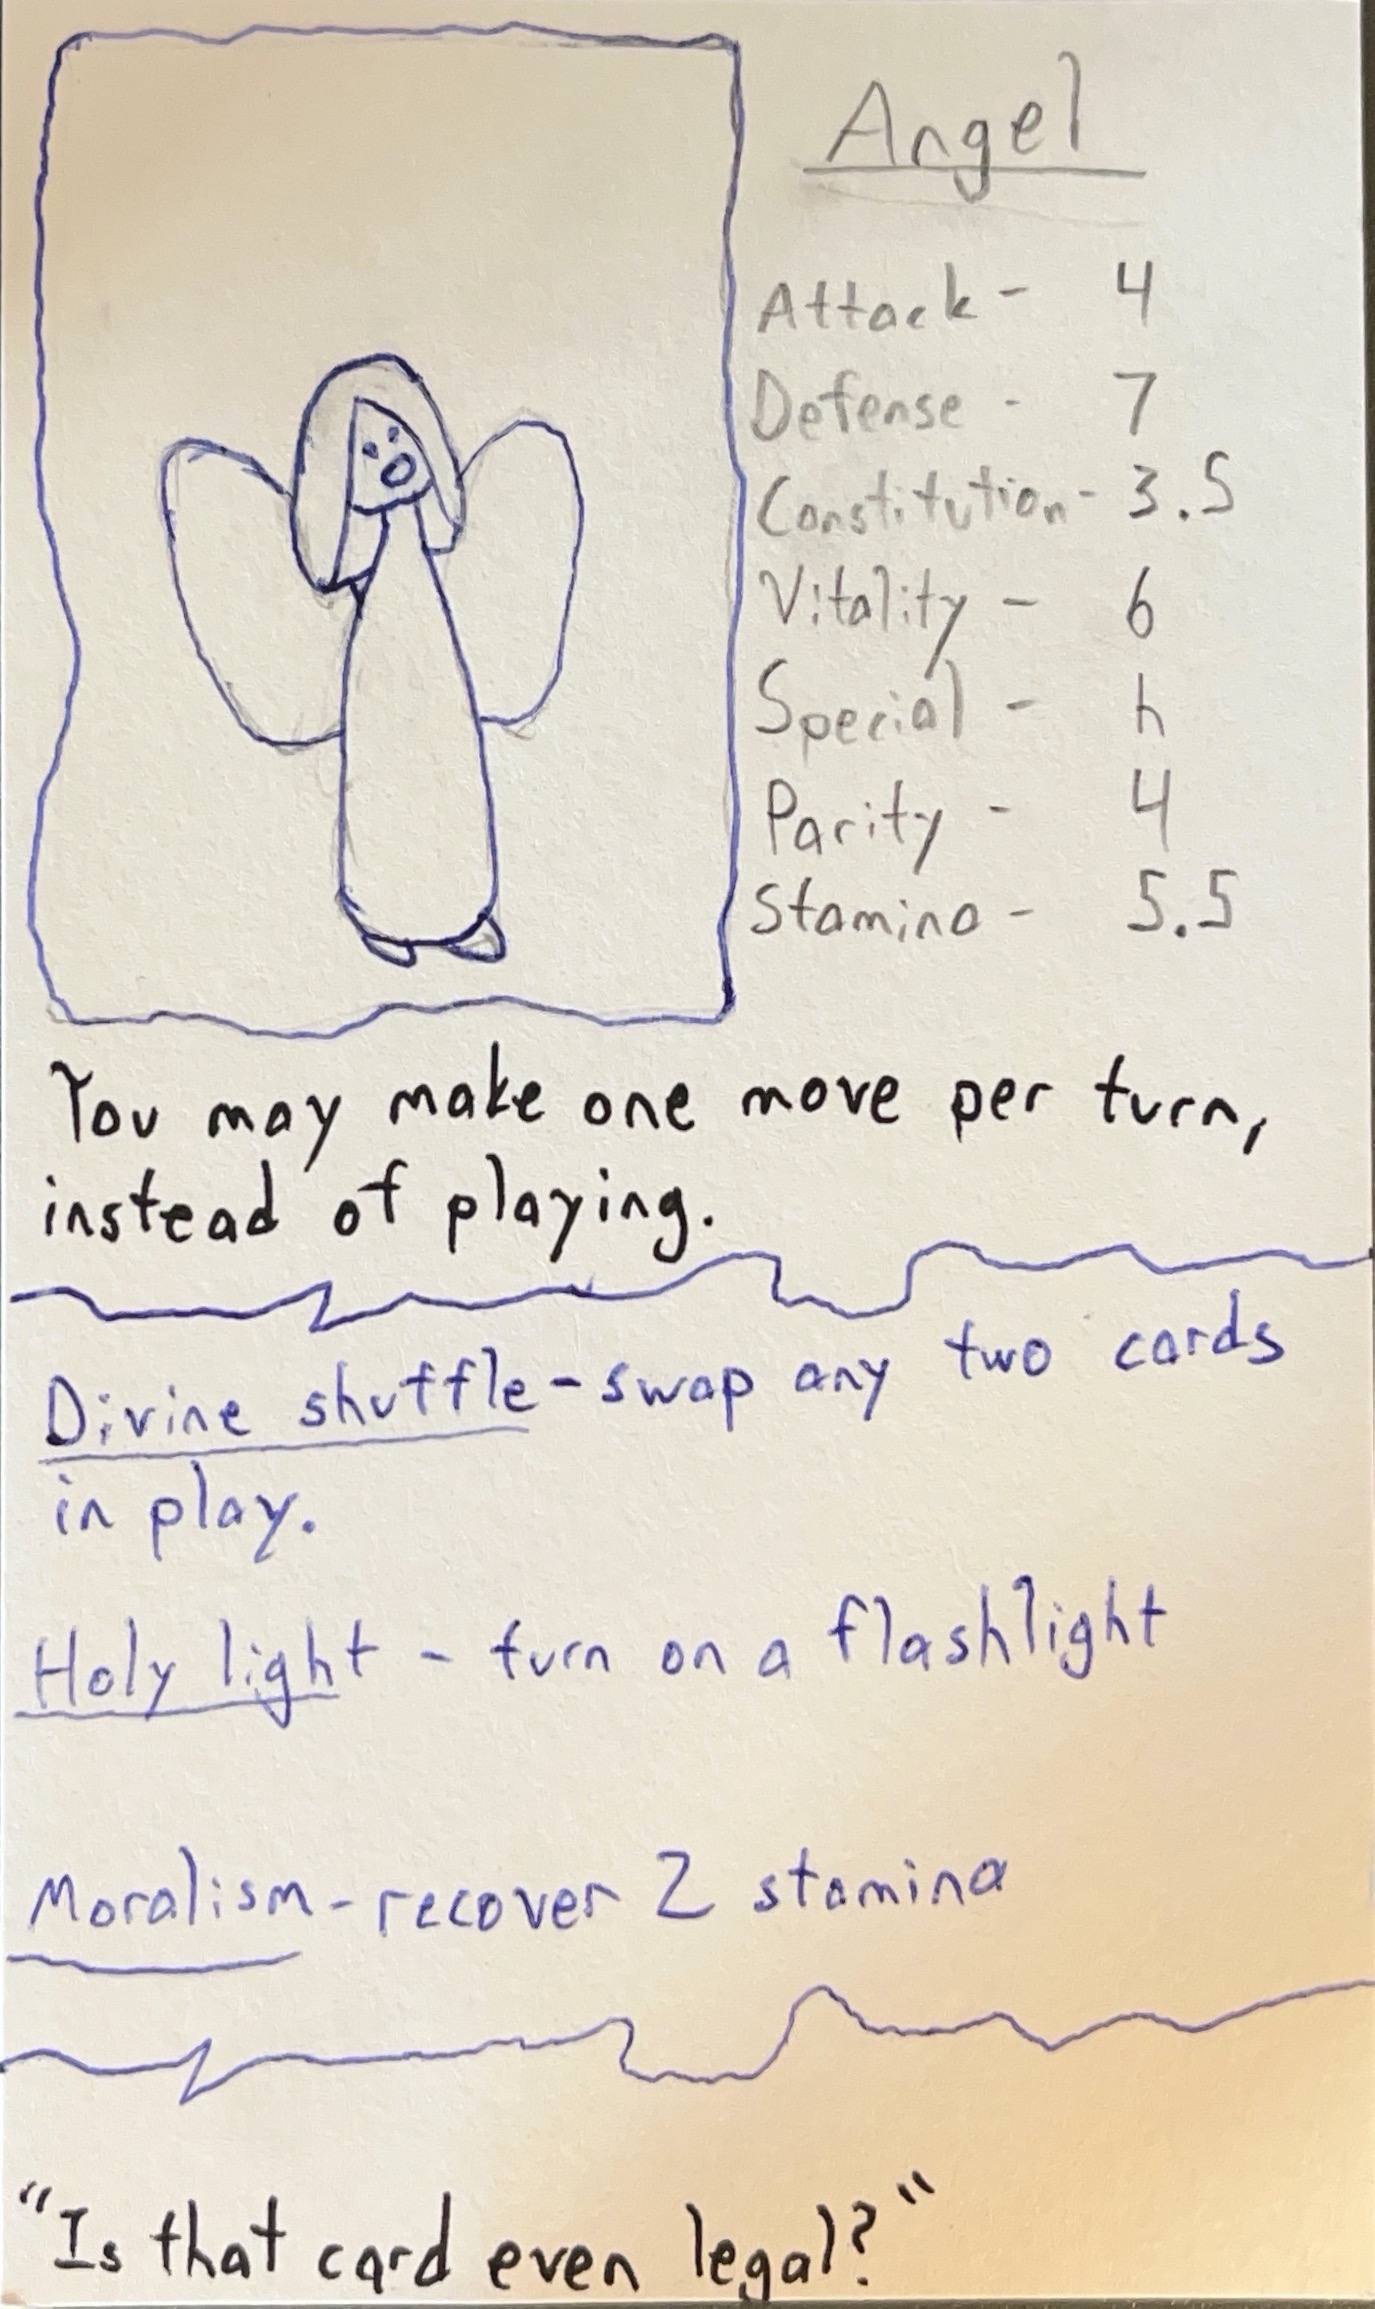 Angel
Attack - 4
Defense - 7
Constitution - 3.5
Vitality - 6
Special - h
Parity - 4
Stamina - 5.5
You may make one move per turn,
instead of playing.
Divine shuffle - swap any two cards
in play.
Holy light - turn on a flashlight
Moralism - recover 2 stamina
"Is that card even legal?"